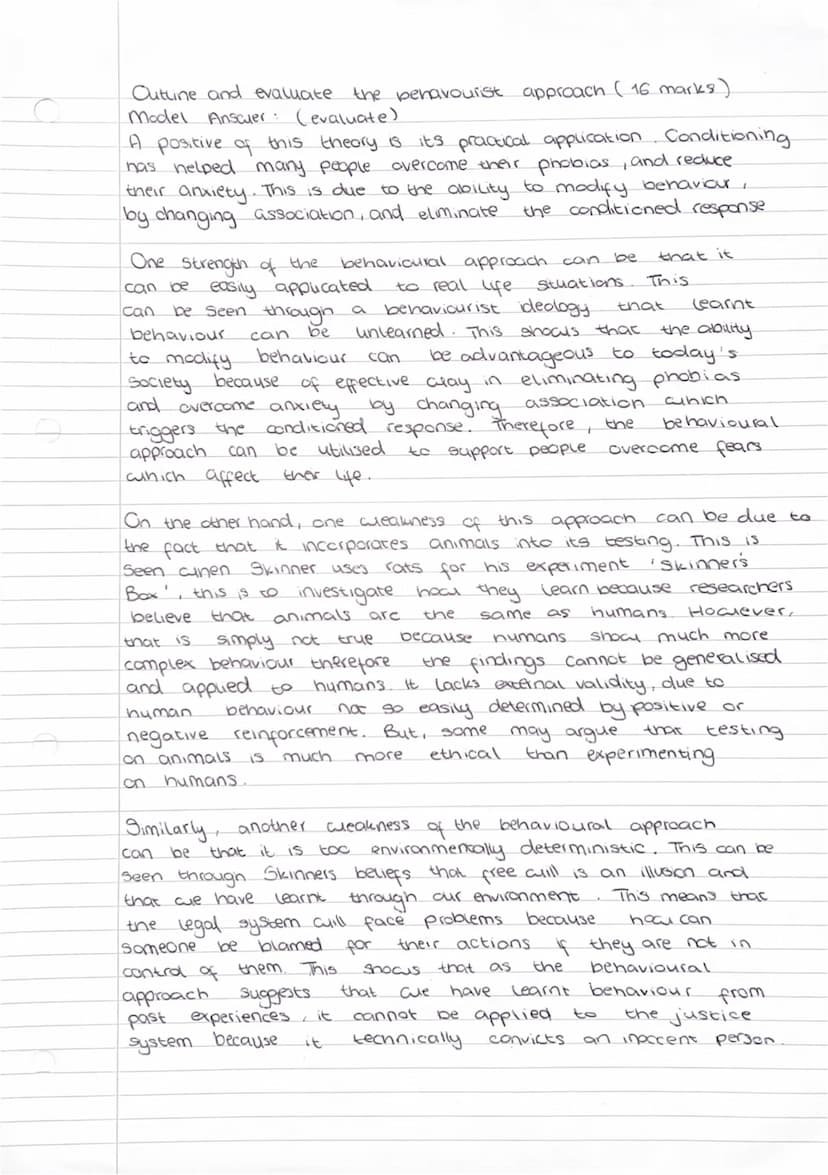 Outline and evaluate the behavourist approach (16 marks)
Model Answer: (evaluate)
A positive of this theory is its practical application. Conditioning
has helped many people overcome their phobias, and reduce
their anxiety. This is due to the ability to modify behaviour,
by changing association, and eliminate the conditioned response
One strength of the behavioural approach can be that it
can be easily applicated to real life situations. This
can be seen through a behaviourist ideology that learnt
behaviour can be unlearned. This shows that the ability
to modify behaviour can be advantageous to today's
society because of effective way in eliminating phobias
and overcome anxiety by changing association which
triggers the conditioned response. Therefore, the behavioural
approach can be utilised to support people overcome fears
which affect their life.
On the other hand, one weakness of this approach can be due to
the fact that it incorporates animals into its testing. This is
seen when Skinner uses rats for his experiment 'Skinner's
Box', this is to investigate how they learn because researchers
believe that animals are the same as humans. However,
that is simply not true because humans show much more
complex behaviour therefore the findings cannot be generalised
and applied to humans. It lacks external validity, due to
human behaviour not so easily determined by positive or
negative reinforcement. But, some may argue that testing
on animals is much more ethical than experimenting
on humans.
Similarly, another weakness of the behavioural approach
can be that it is too environmentally deterministic. This can be
seen through Skinners beliefs that free will is an illusion and
that we have learnt through our environment. This means that
the legal system will face problems because how can
someone be blamed for their actions if they are not in
control of them. This shows that as the behavioural
approach suggests that we have learnt behaviour from
past experiences, it cannot be applied to the justice
system because it technically convicts an innocent person.